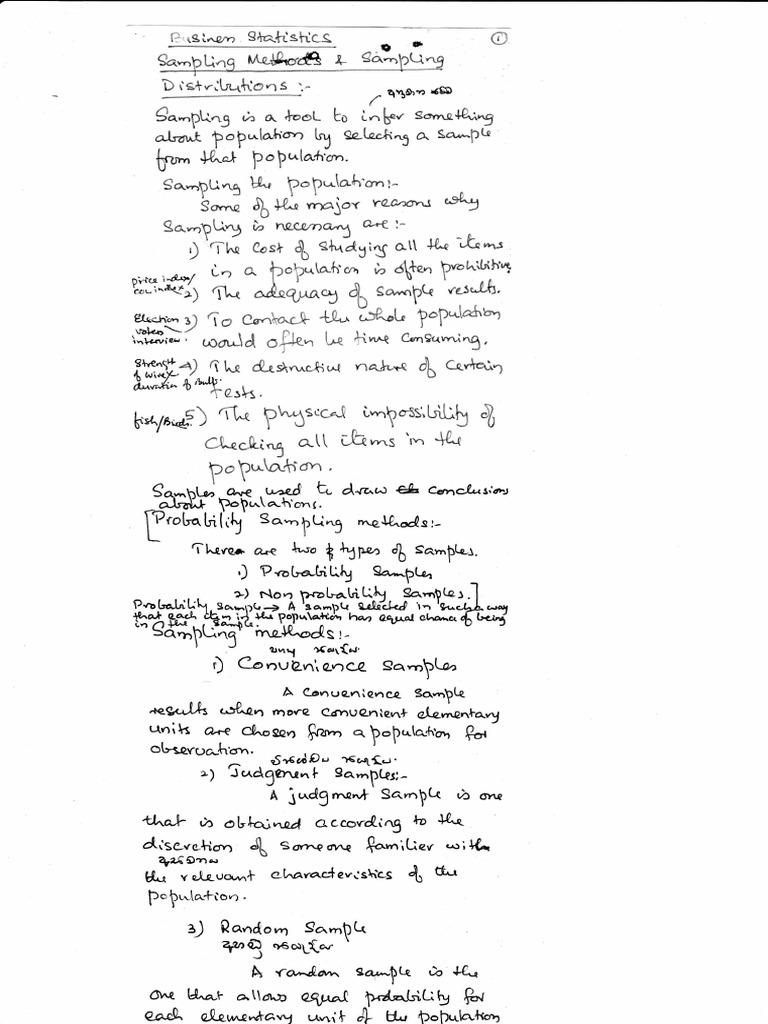 Business Statistics
1
Sampling Methods & Sampling
Distributions :-
Sampling is a tool to infer something
about population by selecting a sample
from that population.
Sampling the population:-
Some of the major reasons why
Sampling is necessary are:-
1) The cost of studying all the items
in a population is often prohibitive
price index/
COL index
2) The adequacy of sample results.
Election
voters
interview.
3) To contact the whole population
would often be time consuming.
Strength
of wire/
duration of bulb.
4) The destructive nature of certain
tests.
fish/Birds.
5) The physical impossibility of
checking all items in the
population.
Samples are used to draw conclusions
about populations.
[Probability Sampling methods:-
There are two types of samples.
1) Probability Samples
2) Non probability Samples.]
Probability sample → A sample selected in such a way
that each item in the population has equal chance of being
in the sample.
Sampling methods:-
1) Convenience Samples
A convenience sample
results when more convenient elementary
units are chosen from a population for
observation.
2) Judgement Samples:-
A judgment sample is one
that is obtained according to the
discretion of someone familier with
the relevant characteristics of the
population.
3) Random Sample
A random sample is the
one that allows equal probability for
each elementary unit of the population